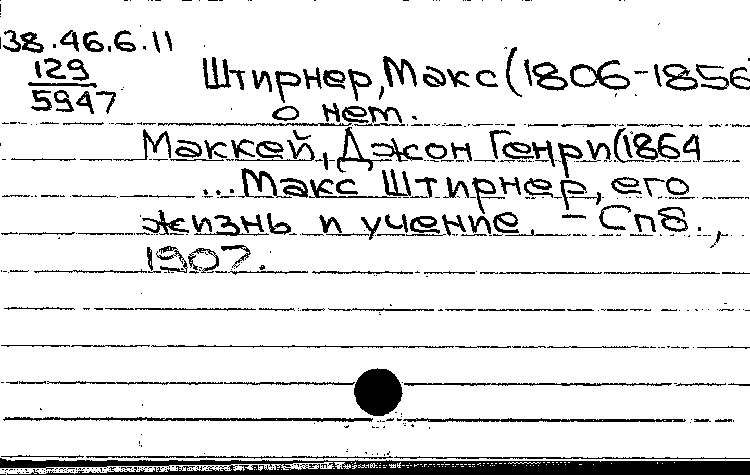 38.46.6.11
129
5947
Штирнер, Макс (1806-1856
о нет.
Маккей, Джон Генри (1864
...Макс Штирнер, его
жизнь и учение. - Спб.,
1907.